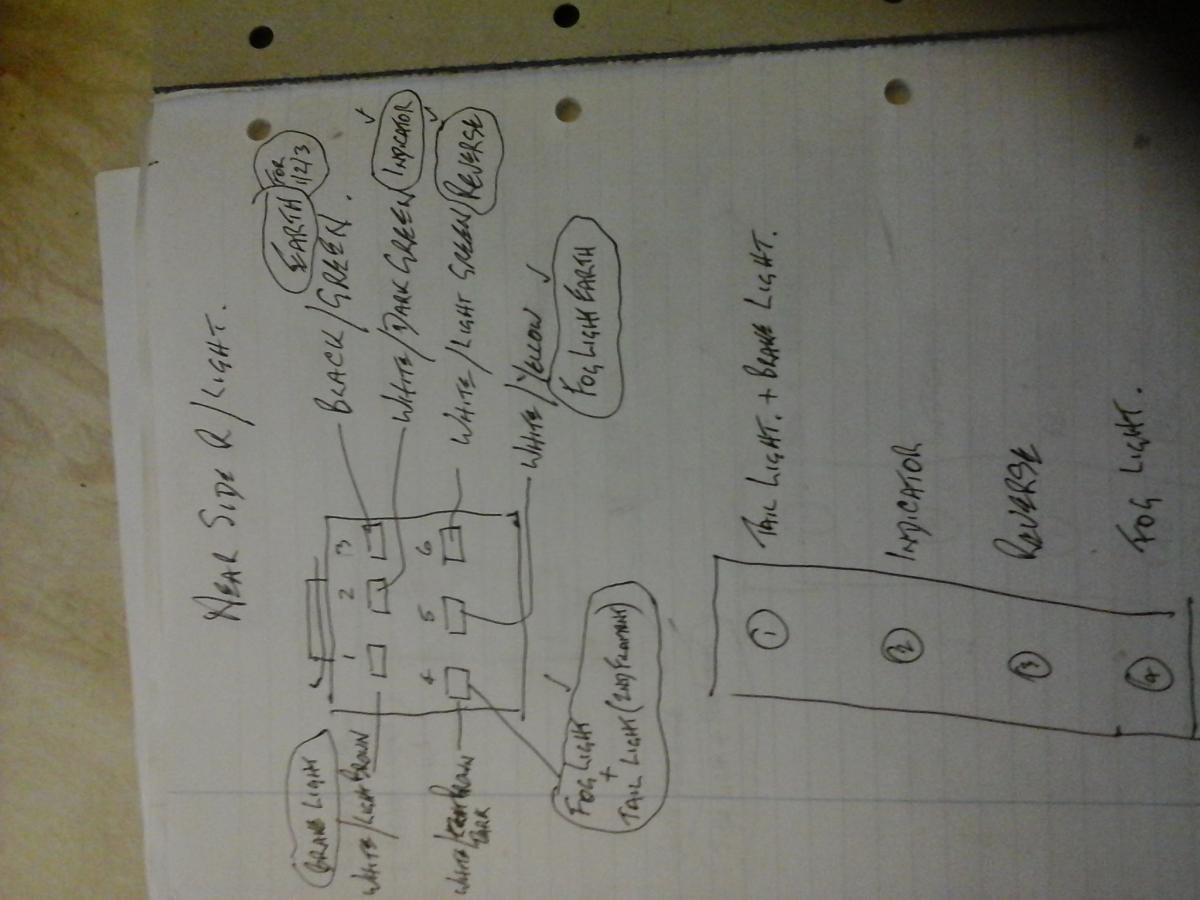 NEAR SIDE R/LIGHT.
BRAKE LIGHT
WHITE/LIGHT BROWN
WHITE/ BROWN
DARK
1 2 3
4 5 6
EARTH FOR 1/2/3
BLACK/GREEN.
WHITE/DARK GREEN INDICATOR ✓
WHITE/LIGHT GREEN REVERSE ✓
WHITE/YELLOW ✓
FOG LIGHT EARTH
FOG LIGHT ✓
+
TAIL LIGHT (2ND FILAMENT)
① TAIL LIGHT. + BRAKE LIGHT.
② INDICATOR
③ REVERSE
④ FOG LIGHT.